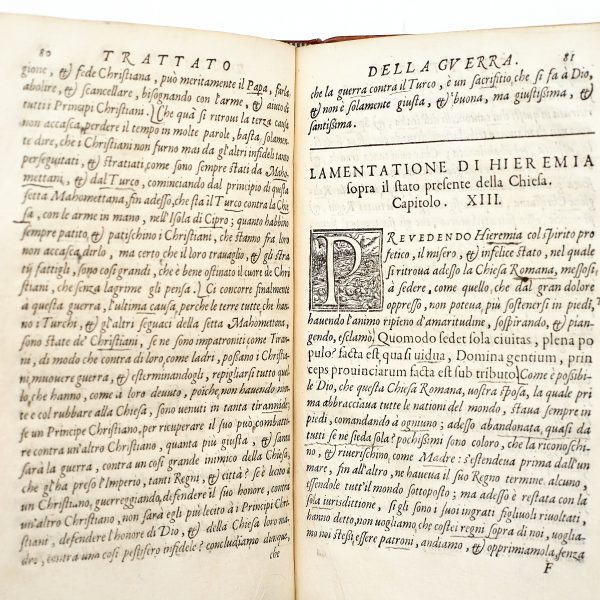 80 TRATTATO
gione, & fede Christiana, può meritamente il Papa, farla
abolire, & scancellare, bisognando con l'arme, & aiuto di
tutti i Principi Christiani. Che quà si ritroui la terza causa
non accasca, perdere il tempo in molte parole, basta, solamen-
te dire, che i Christiani non furno mai da gl'altri infideli tanto
perseguitati, & stratiati, come sono sempre stati da Maho-
mettani, & dal Turco, cominciando dal principio di questa
setta Mahomettana, fin adesso, che stà il Turco contra la Chie
sa, con le arme in mano, nell'Isola di Cipro; quanto habbino
sempre patito, & patischino i Christiani, che stanno fra loro
non accasca dirlo, ma certo che il loro trauaglio, & gli stra
tij fattigli, sono cosi grandi, che è bene ostinato il cuore de Chri
stiani, che senza lagrime gli pensa. Ci concorre finalmente
a questa guerra, l'ultima causa, perche le terre tutte, che hanno
i Turchi, & gl'altri seguaci della setta Mahomettana,
sono state de' Christiani, se ne sono impatroniti come Tiran-
ni, di modo che contra di loro, come ladri, possano i Christia-
ni, muouere guerra, & esterminandogli, repigliarsi tutto quel-
lo che hanno, come à loro deuuto, poiche, non hauendo mon-
te e col rubbare alla Chiesa, sono uenuti in tanta tirannide;
se un Principe Christiano, per ricuperare il suo può, combatte-
re contra un'altro Christiano, quanta più giusta, & santa
sarà la guerra, contra un cosi grande inimico della Chiesa,
che gl'ha preso l'Imperio, tanti Regni, & città? se è lecito à
un Christiano, guerreggiando, defendere il suo honore, contra
un'altro Christiano, non sarà egli più lecito à i Principi Chri
stiani, defendere l'honore di Dio, & della Chiesa loro ma-
dre, contra uno cosi pestifero infidele? concludiamo dunque,
che
DELLA GVERRA. 81
che la guerra contra il Turco, è un sacrifitio, che si fà à Dio,
& non è solamente giusta, & buona, ma giustissima, &
santissima.
LAMENTATIONE DI HIEREMIA
sopra il stato presente della Chiesa.
Capitolo. XIII.
PREVEDENDO Hieremia col spirito pro
fetico, il misero, & infelice stato, nel quale
si ritroua adesso la Chiesa Romana, messosi,
à sedere, come quello, che dal gran dolore
oppresso, non poteua, più sostenersi in piedi,
hauendo l'animo ripieno d'amaritudine, sospirando, & pian-
gendo, esclamò Quomodo sedet sola ciuitas, plena po
pulo? facta est quasi uidua, Domina gentium, prin
ceps prouinciarum facta est sub tributo. Come è possibi-
le Dio, che questa Chiesa Romana, uostra sposa, la quale pri
ma abbracciaua tutte le nationi del mondo, staua sempre in
piedi, comandando à ogniuno; adesso abandonata, quasi da
tutti se ne sieda sola? pochissimi sono coloro, che la riconoschi-
no, & riuerischino, come Madre: s'estendeua prima dall'un
mare, fin all'altro, ne haueua il suo Regno termine alcuno,
essendole tutt'il mondo sottoposto; ma adesso è restata con la
sola iurisditione, si gli sono i suoi ingrati figliuoli riuoltati,
hanno detto, non uogliamo, che costei regni sopra di noi, uoglia-
mo noi stessi, essere patroni, andiamo, & opprimiamola, senza
F